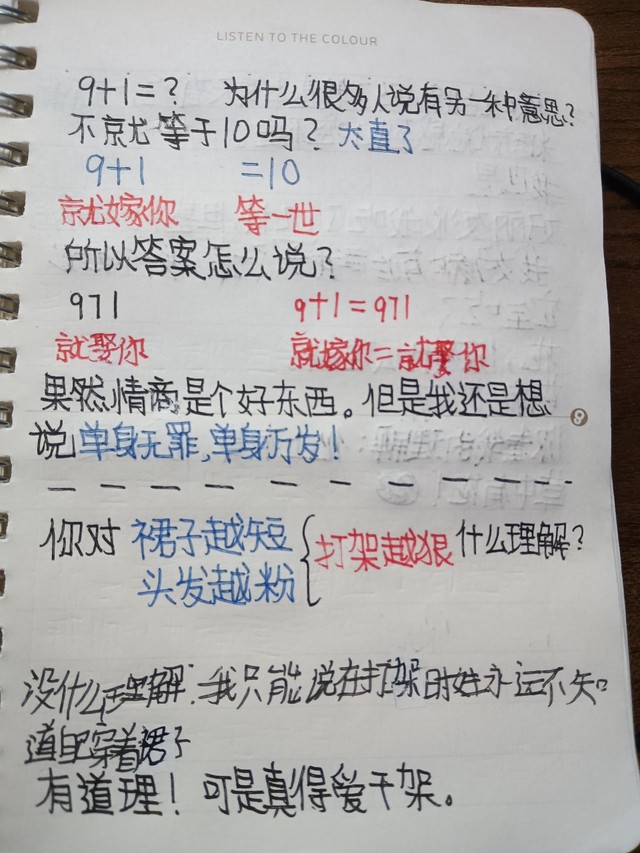 LISTEN TO THE COLOUR
9+1=? 为什么很多人说有另一种意思?
不就等于10吗? 太直了
9+1 =10
就嫁你 等一世
所以答案怎么说?
971 9+1=971
就娶你 就嫁你=就娶你
果然情商是个好东西。但是我还是想
说单身无罪,单身万岁!
你对 裙子越短 { 打架越狠 什么理解?
头发越粉
没什么理解.我只能说在打架时她永远不知
道自己穿着裙子
有道理! 可是真得爱干架。